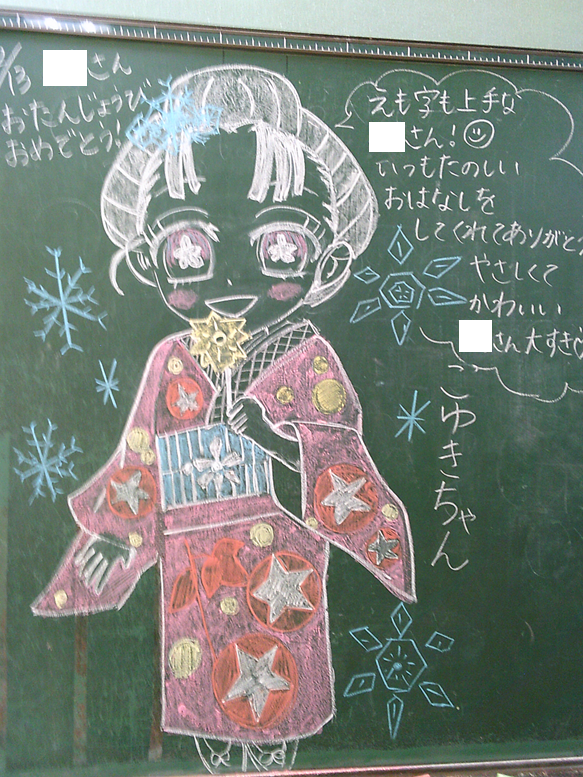 /13 さん
おたんじょうび
おめでとう!
えも字も上手な
さん!
いつもたのしい
おはなしを
してくれてありがとう
やさしくて
かわいい
さん大すき♡
こゆきちゃん